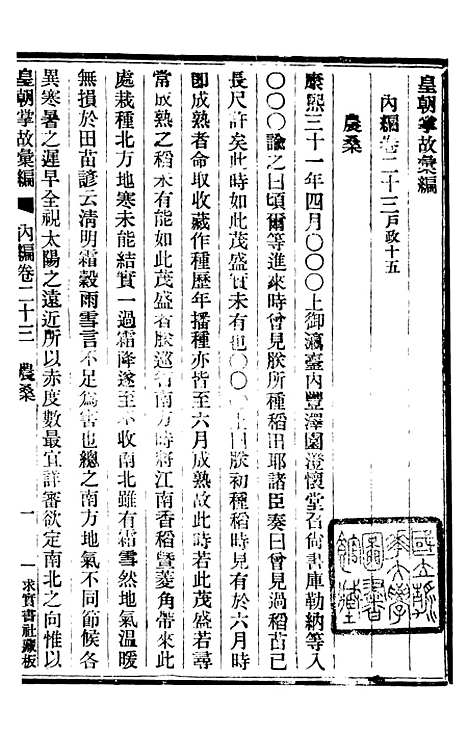 皇朝掌故彙編
內編卷二十三戶政十五
農桑
康熙三十一年四月〇〇〇上御瀛臺內豐澤園澄懷堂召尙書庫勒納等入
〇〇〇諭之曰頃爾等進來時曾見朕所種稻田耶諸臣奏曰曾見過稻苗已
長尺許矣此時如此茂盛實未有也〇〇〇上曰朕初種稻時見有於六月時
卽成熟者命取收藏作種歷年播種亦皆至六月成熟故此時若此茂盛若尋
常成熟之稻未有能如此茂盛者朕巡行南方時將江南香稻暨菱角帶來此
處栽種北方地寒未能結實一過霜降遂至不收南北雖有霜雪然地氣溫暖
無損於田苗諺云清明霜穀雨雪言不足爲害也總之南方地氣不同節候各
異寒暑之遲早全視太陽之遠近所以赤度數最宜詳審欲定南北之向惟以
皇朝掌故彙編 內編卷二十三 農桑 一 求實書社藏板
國立
大學
圖書